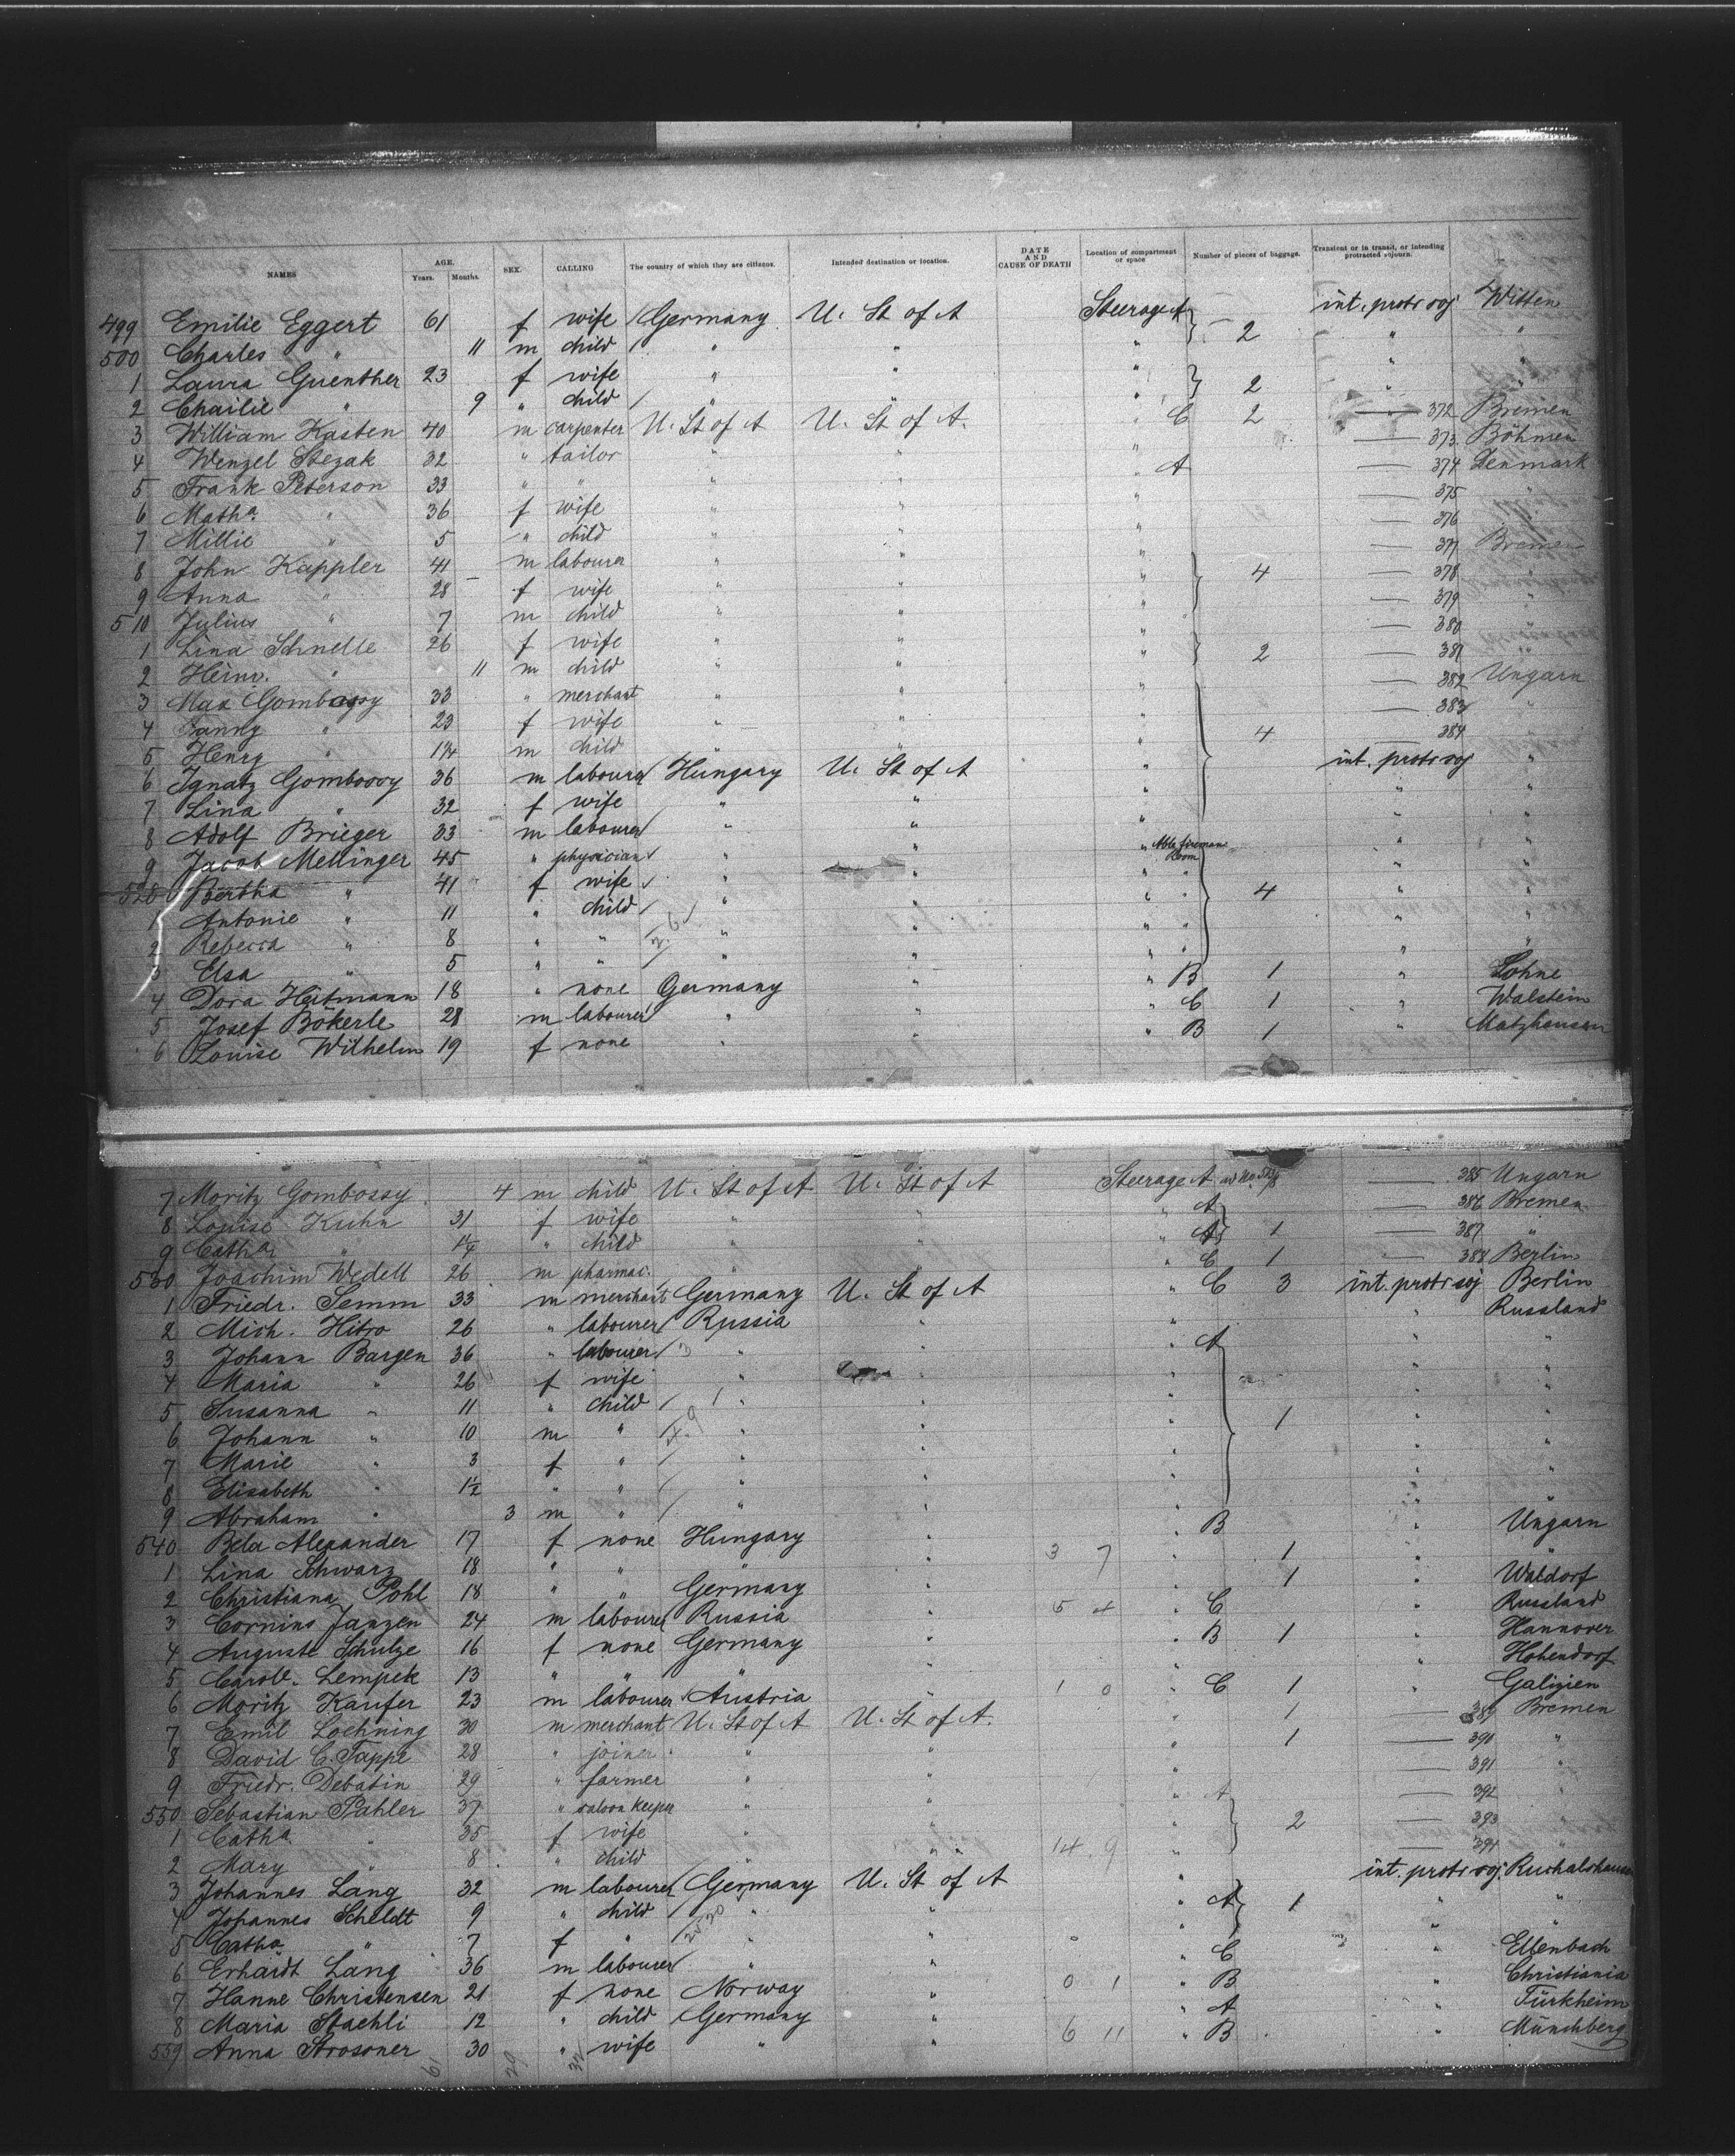 NAMES AGE. Years. Months. SEX. CALLING The country of which they are citizens. Intended destination or location. DATE AND CAUSE OF DEATH Location of compartment or space Number of pieces of baggage. Transient or in transit, or intending protracted sojourn.
499 Emilie Eggert 61 f wife Germany U. St of A Steerage A 2 int. protr soj Witten
500 Charles " 11 m child " " " " "
1 Laura Guenther 23 f wife " " " 2 " "
2 Chailie " 9 " child " " " " "
3 William Kasten 40 m carpenter U. St of A U. St of A. " C 2 — 372 Bremen
4 Wenzel Stezak 32 " tailor " " " — 373 Böhmen
5 Frank Peterson 33 " " " " " A — 374 Denmark
6 Matha " 36 f wife " " " — 375 "
7 Millie " 5 " child " " " — 376 "
8 John Kappler 41 m labourer " " " 4 — 377 Bremen
9 Anna " 28 f wife " " " — 378 "
510 Julius " 7 m child " " " — 379 "
1 Lina Schnelle 26 f wife " " " 2 — 380 "
2 Heinr. " 11 m child " " " — 381 "
3 Max Gombossy 33 " merchant " " " 4 — 382 Ungarn
4 Fanny " 23 f wife " " " — 383 "
5 Henry " 1¼ m child " " " — 384 "
6 Ignatz Gombossy 36 m labourer Hungary U. St of A " int. protr soj "
7 Lina " 32 f wife " " " " "
8 Adolf Brieger 33 m labourer " " " " "
9 Jacob Mellinger 45 " physician " " " Room 4 " "
520 Bertha " 41 f wife " " " " " "
1 Antonie " 11 " child " " " " " "
2 Rebecca " 8 " " " " " " " "
3 Elsa " 5 " " " " " " " "
4 Dora Heitmann 18 " none Germany " " B 1 " Lohne
5 Josef Bökerle 28 m labourer " " " C 1 " Walstein
6 Louise Wilhelm 19 f none " " " B 1 " Matzhausen
7 Moritz Gombossy 4 m child U. St of A U. St of A Steerage A — 385 Ungarn
8 Louise Kuhn 31 f wife " " " A 1 — 386 Bremen
9 Catha " 1¼ " child " " " A — 387 "
530 Joachim Wedell 26 m pharmac. " " " C 1 — 388 Berlin
1 Friedr. Semm 33 m merchant Germany U. St of A " C 3 int. protr soj Berlin
2 Mich. Hitro 26 " labourer Russia " " " Russland
3 Johann Bargen 36 " labourer " " " A 1 " "
4 Maria " 26 f wife " " " " "
5 Susanna " 11 " child " " " " "
6 Johann " 10 m " " " " " "
7 Marie " 3 f " " " " " "
8 Elisabeth " 1½ " " " " " " "
9 Abraham " 3 m " " " " " "
540 Bela Alexander 17 f none Hungary " " B " Ungarn
1 Lina Schwarz 18 " " " " 3 7 " 1 " "
2 Christiana Pohl 18 " " Germany " " 1 " Waldorf
3 Cornins Janzen 24 m labourer Russia " 5 4 " C " Russland
4 Auguste Schulze 16 f none Germany " " B 1 " Hannover
5 Carol. Lempek 13 " " " " " " Hohendorf
6 Moritz Kaufer 23 m labourer Austria " 1 0 " C 1 " Galizien
7 Emil Loehning 30 m merchant U. St of A U. St of A. " 1 — 389 Bremen
8 David C. Tappe 28 " joiner " " " 1 — 390 "
9 Friedr. Debatin 29 " farmer " " " — 391 "
550 Sebastian Pahler 37 " saloon keeper " " " A 2 — 392 "
1 Catha " 35 f wife " " " — 393 "
2 Mary " 8 " child " " 14 9 " — 394 "
3 Johannes Lang 32 m labourer Germany U. St of A " A 1 int. protr soj.
4 Johannes Scheldt 9 " child " " " " "
5 Catha " 7 f " " " " "
6 Erhardt Lang 36 m labourer " " " C " Ellenbach
7 Hanne Christensen 21 f none Norway " 0 1 " B " Christiania
8 Maria Staehli 12 " child Germany " " A " Türkheim
559 Anna Strosoner 30 " wife " " 6 11 " B " Münchberg